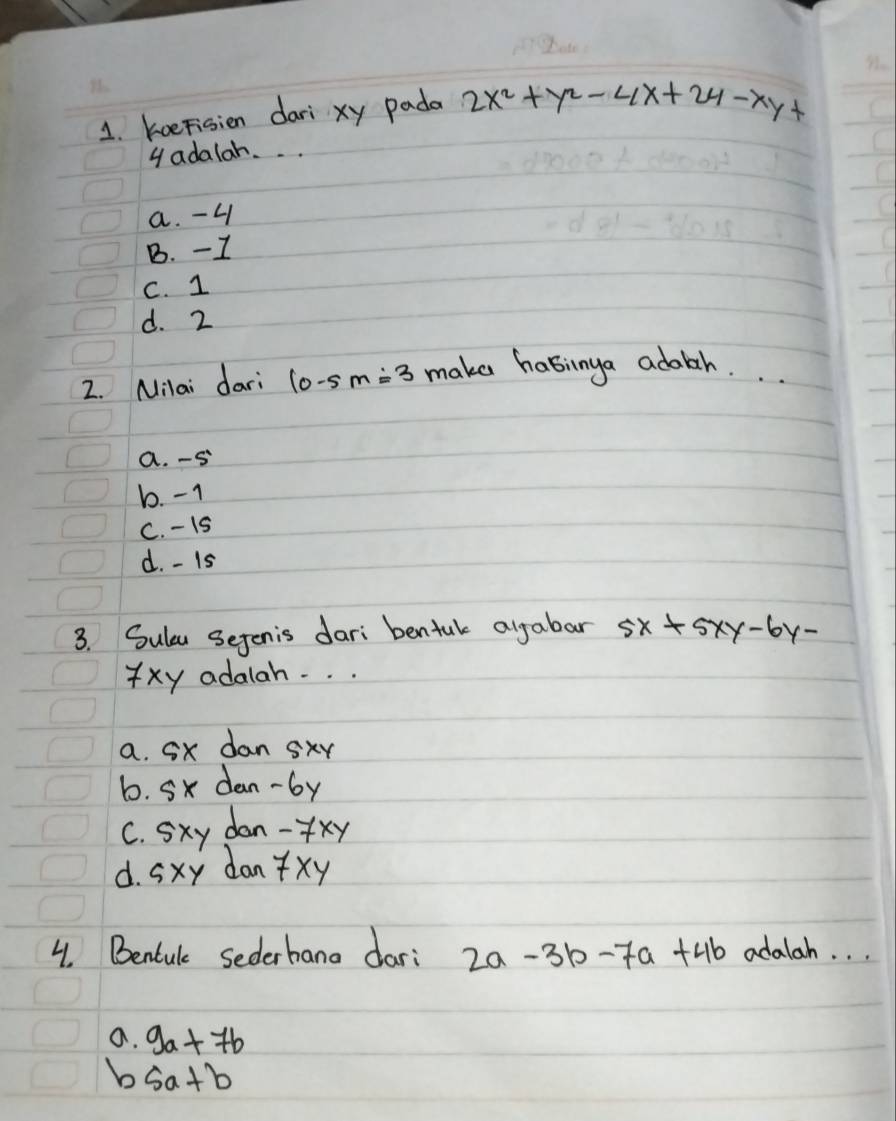 Date:
1. Koefisien dari xy pada 2x² + y² - 4x + 24 - xy +
4 adalah. . .
a. -4
B. -1
C. 1
d. 2
2. Nilai dari 10-5 m = 3 maka hasilnya adalah. . .
a. -5
b. -1
C. -15
d. -15
3. Suku sejenis dari bentuk aljabar 5x + 5xy - 6y -
7xy adalah . . .
a. 5x dan 5xy
b. 5x dan -6y
C. 5xy dan -7xy
d. 5xy dan 7xy
4. Bentuk sederhana dari 2a - 3b - 7a + 4b adalah ...
a. 9a + 7b
b 5a + b